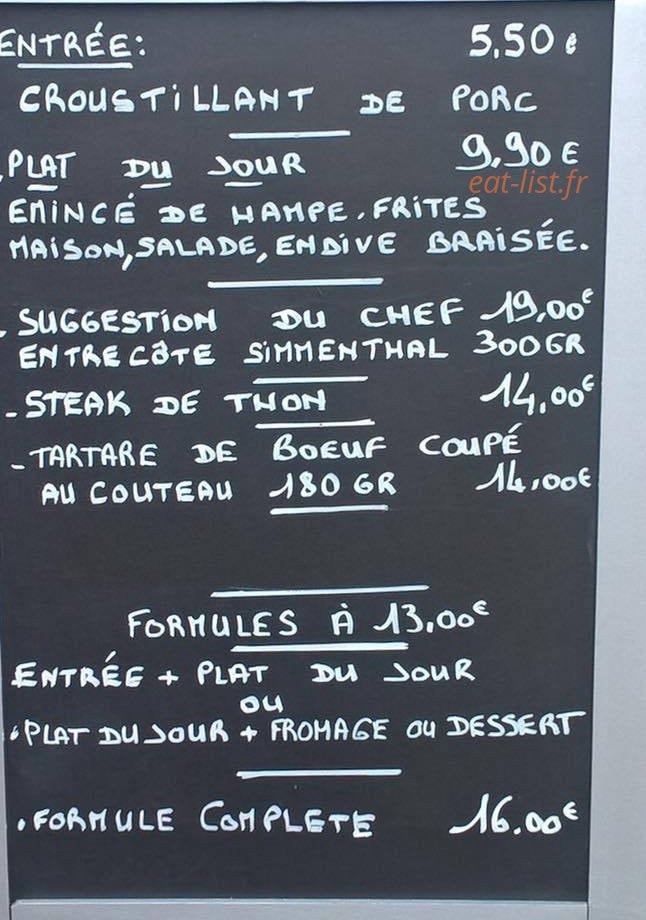 ENTRÉE: 5,50 €
CROUSTILLANT DE PORC
PLAT DU JOUR 9,90 €
eat-list.fr
EMINCÉ DE HAMPE. FRITES
MAISON, SALADE, ENDIVE BRAISÉE.
. SUGGESTION DU CHEF 19,00€
ENTRECÔTE SIMMENTHAL 300GR
- STEAK DE THON 14,00€
- TARTARE DE BOEUF COUPÉ
AU COUTEAU 180 GR 14,00€
FORMULES À 13,00€
ENTRÉE + PLAT DU JOUR
OU
. PLAT DU JOUR + FROMAGE OU DESSERT
. FORMULE COMPLETE 16.00€